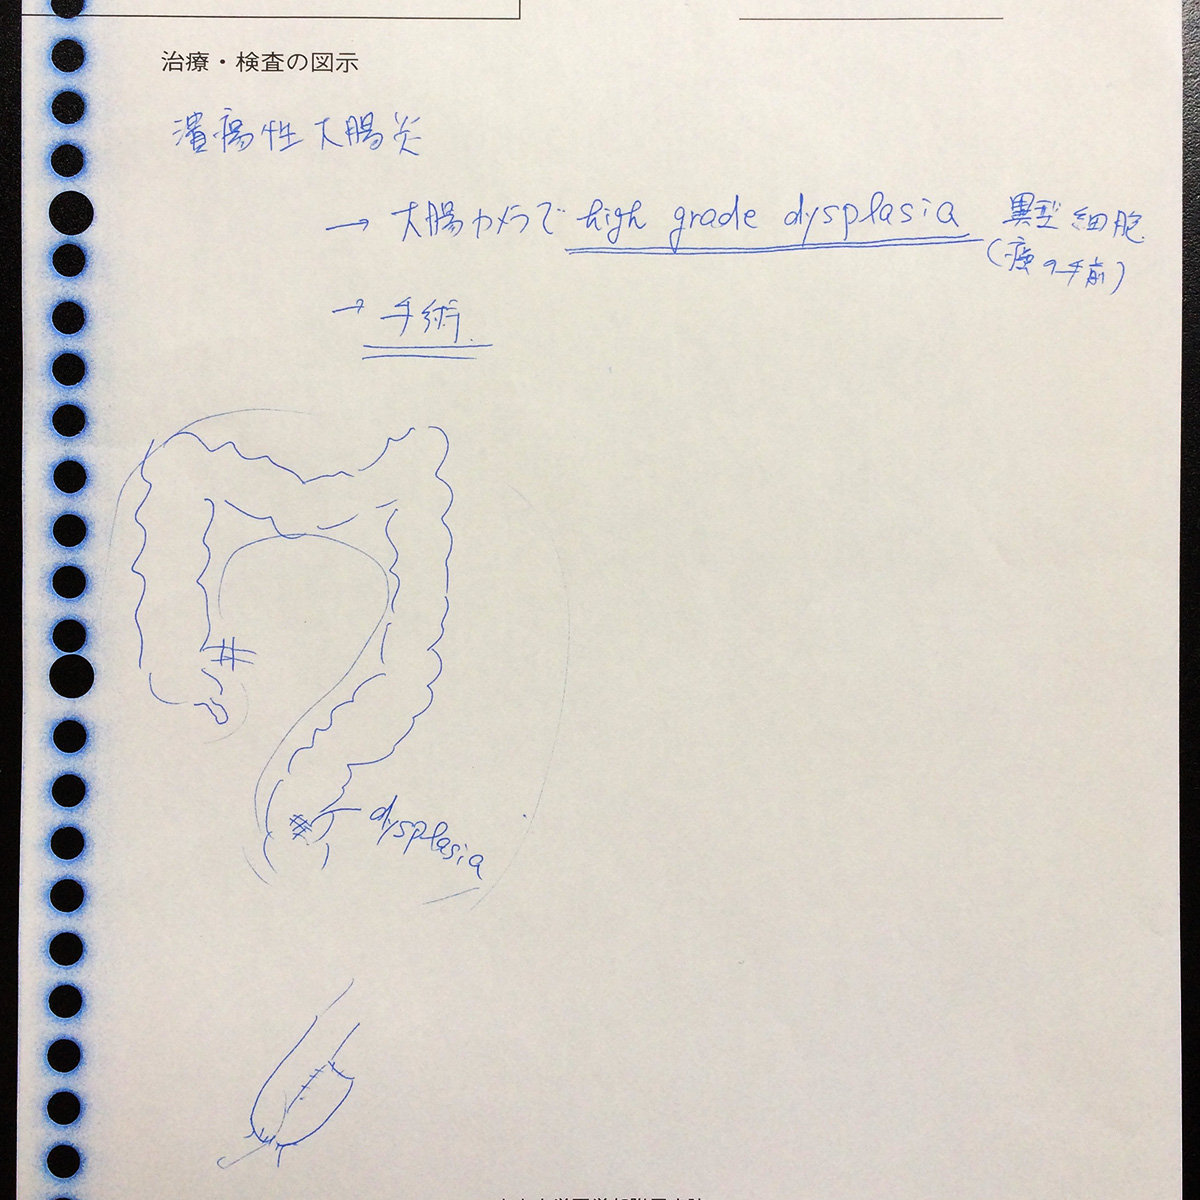 治療・検査の図示
潰瘍性大腸炎
→ 大腸カメラで high grade dysplasia 異型細胞
(癌の手前)
→ 手術
dysplasia